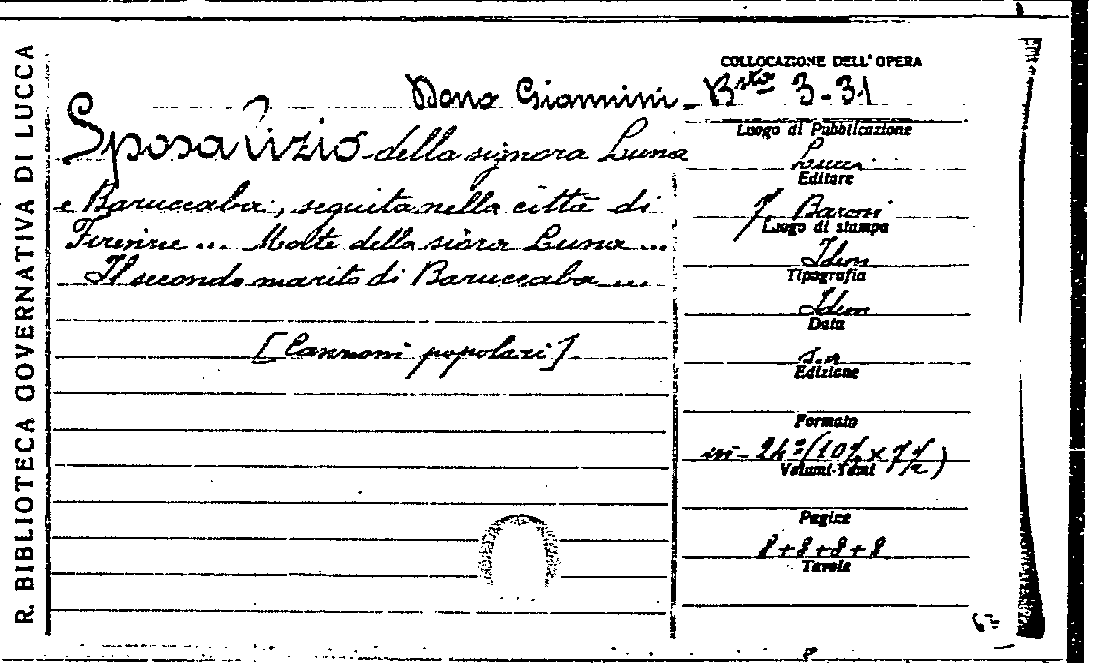 R. BIBLIOTECA GOVERNATIVA DI LUCCA
Dono Giannini - Bsta 3-31
Sposalizio della signora Luna
e Baruccaba, seguita nella città di
Firenze ... Morte della siora Luna ...
Il secondo marito di Baruccaba ...
[Canzoni popolari]
COLLOCAZIONE DELL'OPERA
Luogo di Pubblicazione
Lucca
Editore
Baroni
Luogo di stampa
Idem
Tipografia
Idem
Data
s.a
Edizione
Formato
in-24º (10½ x 7½)
Volumi-Tomi
Pagine
8+8+8+8
Tavole